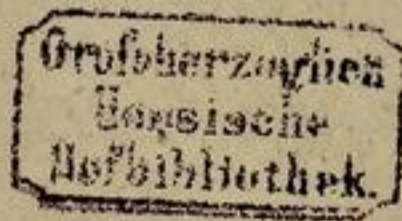 Großherzoglich
Hessische
Hofbibliothek.